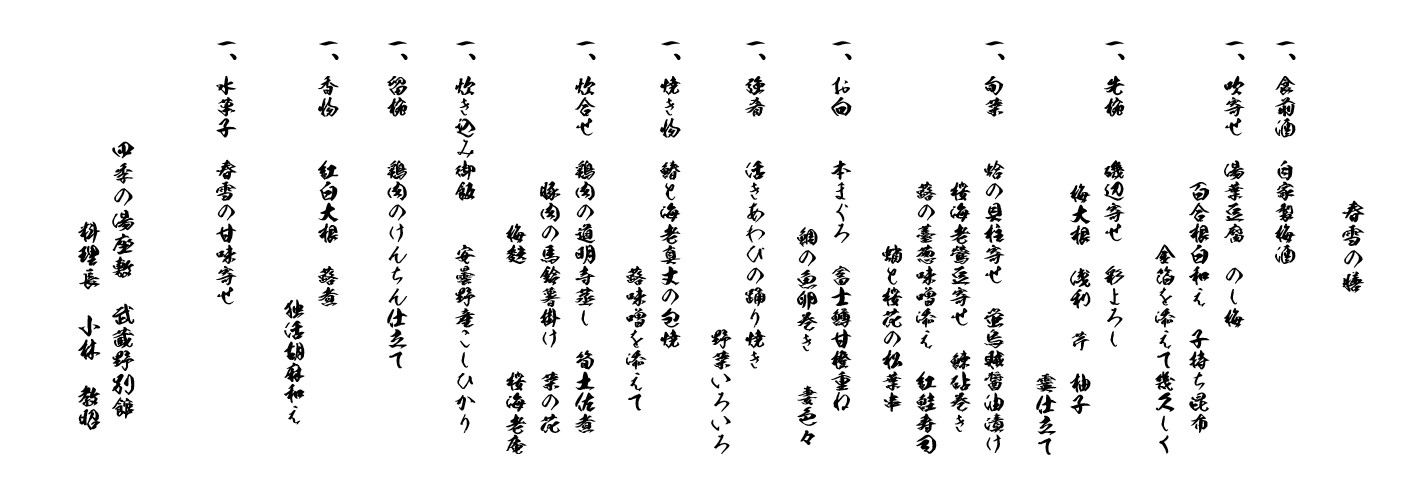 春雪の膳
一、食前酒 自家製梅酒
一、吹寄せ 湯葉豆腐 のし梅
百合根白和え 子持ち昆布
金箔を添えて幾久しく
一、先椀 磯辺寄せ 彩よろし
梅大根 浅利 芹 柚子
霙仕立て
一、旬菜 蛤の貝柱寄せ 蛍烏賊醤油漬け
桜海老鶯豆寄せ 鰊砧巻き
蕗の薹葱味噌添え 紅鮭寿司
蛸と桜花の松葉串
一、お向 本まぐろ 富士鱒甘橙重ね
鯛の魚卵巻き 妻色々
一、強肴 活きあわびの踊り焼き
野菜いろいろ
一、焼き物 鰆と海老真丈の包焼
蕗味噌を添えて
一、炊合せ 鶏肉の道明寺蒸し 筍土佐煮
豚肉の馬鈴薯掛け 菜の花
梅麩 桜海老庵
一、炊き込み御飯 安曇野産こしひかり
一、留椀 鶏肉のけんちん仕立て
一、香物 紅白大根 蕗煮
独活胡麻和え
一、水菓子 春雪の甘味寄せ
四季の湯座敷 武蔵野別館
料理長 小林 教昭